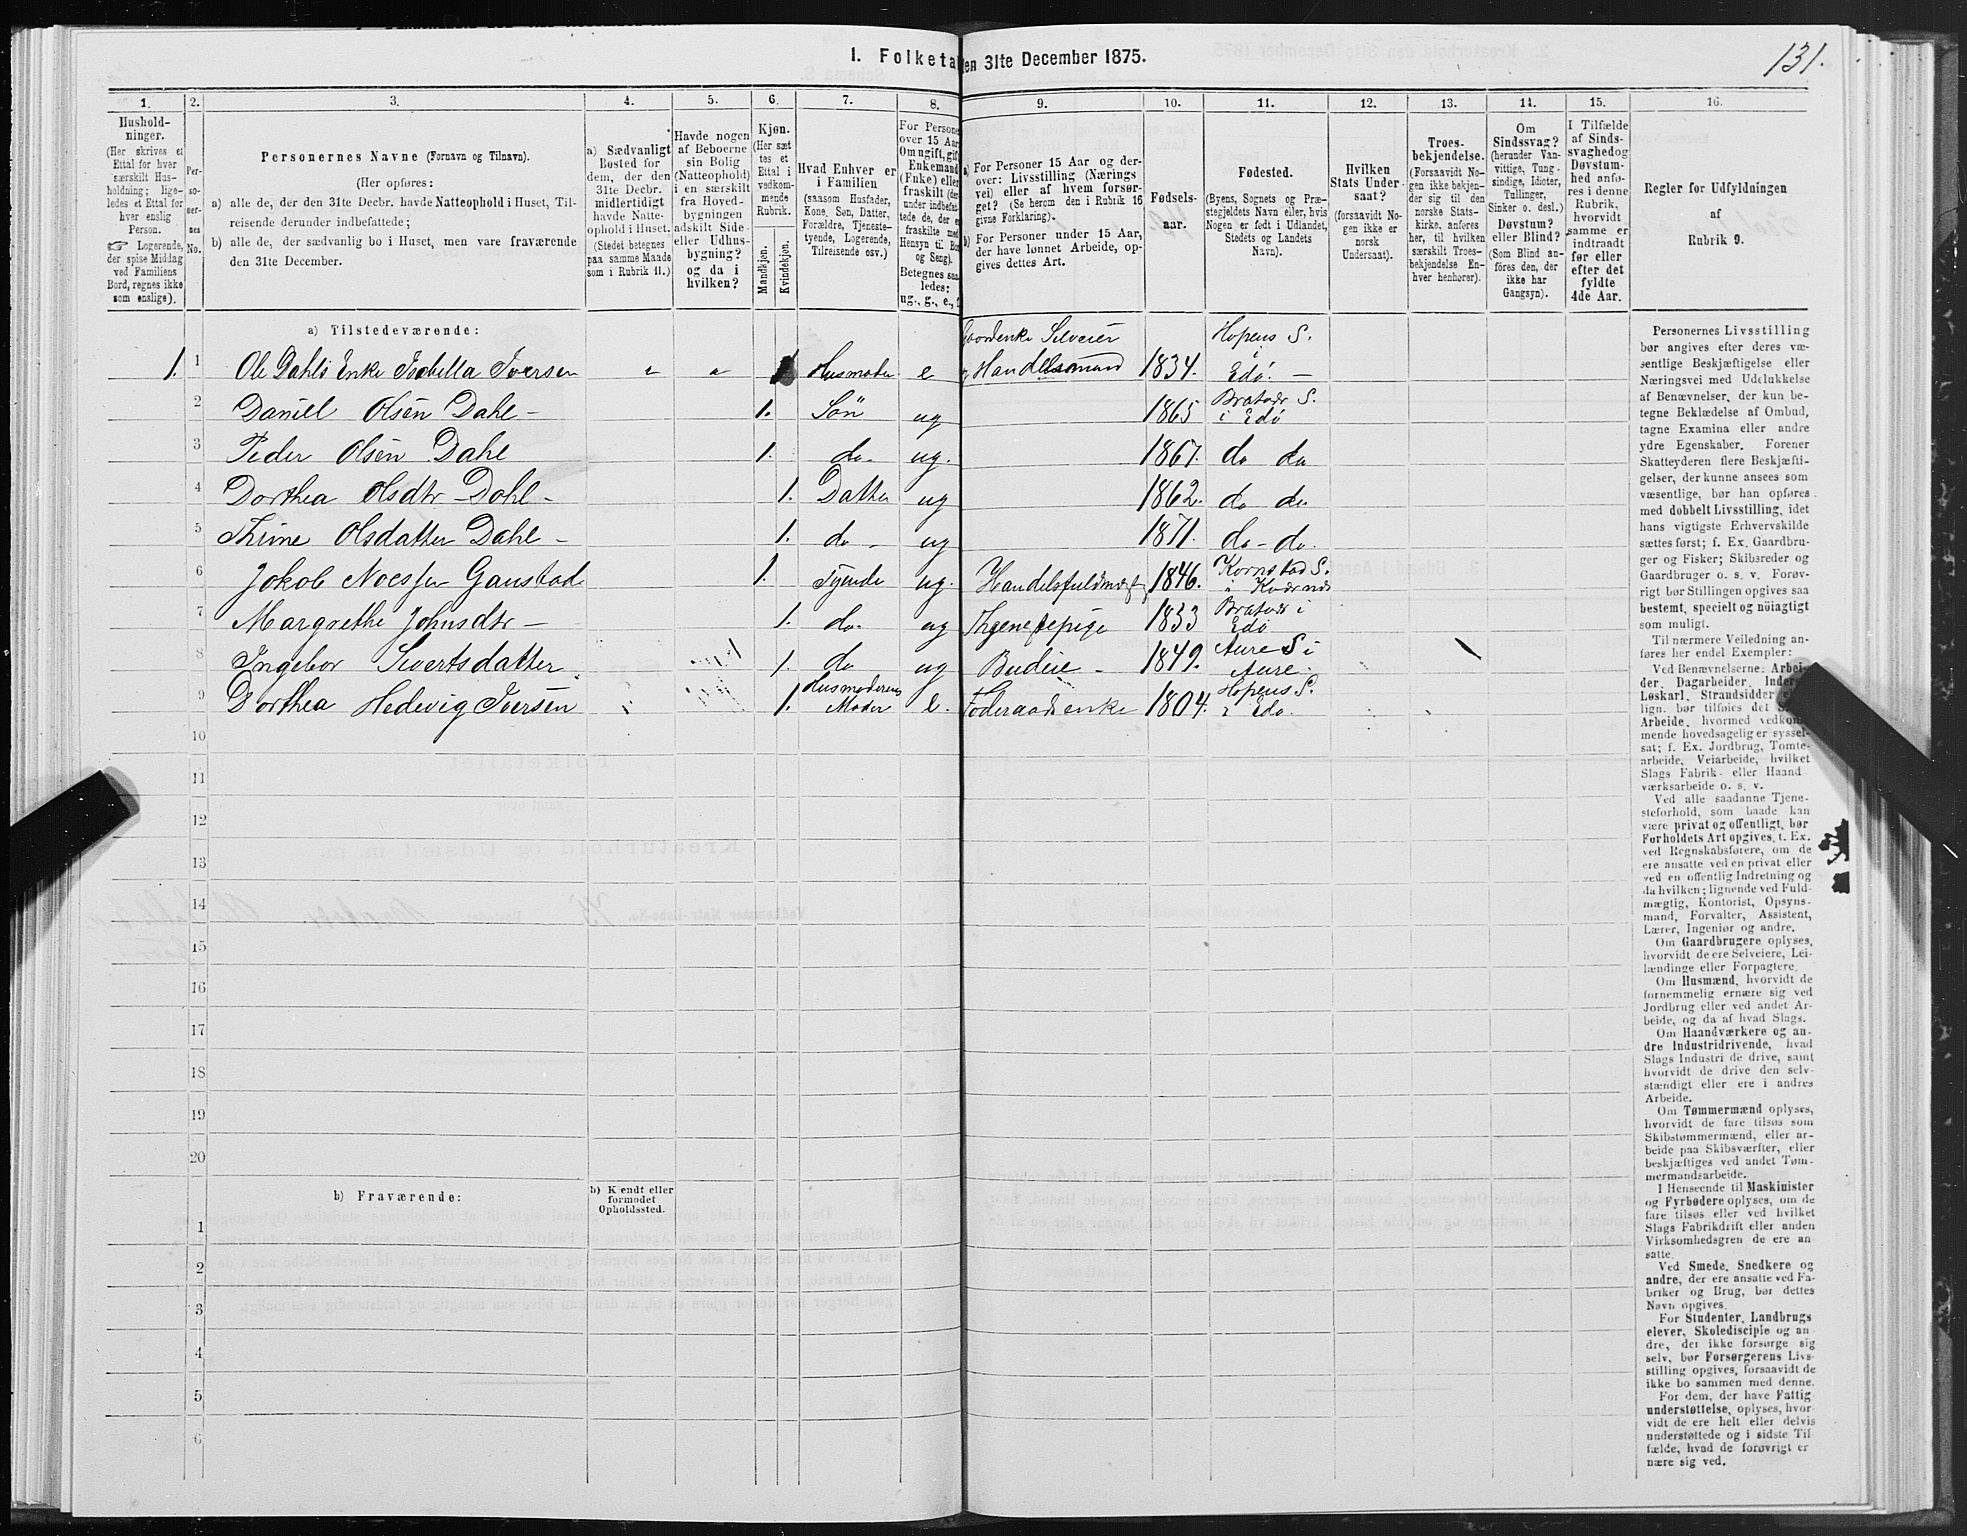 131.
1. Folketa
en 31te December 1875.
1.
2.
3.
4.
5.
6.
7.
8.
9.
10.
11.
12.
13.
14.
15.
16.
Hushold-
ninger.
(Her skrives et
Ettal for hver
særskilt Hus-
holdning; lige-
ledes et Ettal for
hver enslig
Person.
☞ Logerende,
der spise Middag
ved Familiens
Bord, regnes ikke
som enslige).
Per-
so-
ner-
nes
No.
Personernes Navne (Fornavn og Tilnavn).
(Her opføres:
a) alle de, der den 31te Decbr. havde Natteophold i Huset, Til-
reisende derunder indbefattede;
b) alle de, der sædvanlig bo i Huset, men vare fraværende
den 31te December.
a) Sædvanligt
Bosted for
dem, der den
31te Decbr.
midlertidigt
havde Natte-
ophold i Huset.
(Stedet betegnes
paa samme Maade
som i Rubrik 11.)
Havde nogen
af Beboerne
sin Bolig
(Natteophold)
i en særskilt
fra Hoved-
bygningen
adskilt Side-
eller Udhus-
bygning?
og da i
hvilken?
Kjøn.
(Her sæt-
tes et
Ettal i
vedkom-
mende
Rubrik.
Mandkjøn.
Kvindekjøn.
Hvad Enhver er
i Familien
(saasom Husfader,
Kone, Søn, Datter,
Forældre, Tjeneste-
tyende, Logerende,
Tilreisende osv.)
For Persone
over 15 Aar
Om ugift, gift
Enkemand
(Enke) eller
fraskilt (der-
under indbefat-
tede de, der e
fraskilte med
Hensyn til Bo
og Seng).
Betegnes saa
ledes:
ug., g., e.,
a) For Personer 15 Aar og der-
over: Livsstilling (Nærings
vei) eller af hvem forsør-
get? (Se herom den i Rubrik 16
givne Forklaring).
b) For Personer under 15 Aar,
der have lønnet Arbeide, op-
gives dettes Art.
Fødsels-
aar.
Fødested.
(Byens, Sognets og Præ-
stegjeldets Navn eller, hvis
Nogen er født i Udlandet,
Stedets og Landets
Navn).
Hvilken
Stats Under-
saat?
(forsaavidt No-
gen ikke er
norsk
Undersaat).
Troes-
bekjendelse.
(Forsaavidt No-
gen ikke bekjen-
der sig til den
norske Stats-
kirke, anføres
her, til hvilken
særskilt Troes-
bekjendelse En-
hver henhører).
Om
Sindssvag?
(herunder Van-
vittige, Tung-
sindige, Idioter,
Tullinger,
Sinker o. desl.)
Døvstum?
eller Blind?
(Som Blind an-
føres den, der
ikke har
Gangsyn).
I Tilfælde
af Sinds-
svaghed og
Døvstum-
hed anfø-
res i denne
Rubrik,
hvorvidt
samme er
indtraadt
før eller
efter det
fyldte
4de Aar.
Regler for Udfyldningen
af
Rubrik 9.
a) Tilstedeværende:
Gaardenke Selveier Hopens S.
1. 1 Ole Dahls Enke Isabella Iversen 1 Husmoder e og Handelsmand 1834. i Edö. —
2 Daniel Olsén Dahl — 1. Sön ug 1865 Bratvær S. i Edö
3 Peder Olsén Dahl 1. do. ug. 1867. do do
4 Dorthea Olsdtr Dahl — 1. Datter ug 1862. do do
5 Thrine Olsdatter Dahl — 1. do — ug 1871. do — do.
6 Jakob Gaustad 1. Tyende ug. Handelsfuldmægtig 1846. Kornstad S. i Kværnæs
7 Margrethe Johnsdtr — 1. do. ug Thjenestepige 1833 Bratvær i Edö
8 Ingebor Sivertsdatter 1. do ug Budeie — 1849. Aure S i Aure
9 Dorthea Hedevig Iversén 1. Husmoderens Moder e. Föderaadsenke 1804. Hopens S. i Edö.
10
11
12
13
14
15
16
17
18
19
20
b) Fraværende:
b) Kjendt eller
formodet
Opholdssted.
1
2
3
4
5
6
Personernes Livsstilling
bør angives efter deres væ-
sentlige Beskjæftigelse eller
Næringsvei med Udelukkelse
af Benævnelser, der kun be-
tegne Beklædelse af Ombud,
tagne Examina eller andre
ydre Egenskaber. Forener
Skatteyderen flere Beskjæfti-
gelser, der kunne ansees som
væsentlige, bør han opføres
med dobbelt Livsstilling, idet
hans vigtigste Erhvervskilde
sættes først; f. Ex. Gaardbru-
ger og Fisker; Skibsreder og
Gaardbruger o. s. v. Forøv-
rigt bør Stillingen opgives saa
bestemt, specielt og nöiagtigt
som muligt.
Til nærmere Veiledning an-
føres her endel Exempler:
Ved Benævnelserne: Arbei-
der, Dagarbeider, Inders
Løskarl, Strandsidder
lign. bør tilføies det
Arbeide, hvormed vedkom-
mende hovedsagelig er syssel-
sat; f. Ex. Jordbrug, Tomte-
arbeide, Veiarbeide, hvilket
Slags Fabrik- eller Haand
værksarbeide o. s. v.
Ved alle saadanne Tjene-
steforhold, som baade kan
være privat og offentligt, bør
Forholdets Art opgives, t. Ex.
ved Regnskabsførere, om de
ere ansatte ved en privat eller
ved en offentlig Indretning og
da hvilken; lignende ved Fuld-
mægtig, Kontorist, Opsyns-
mand, Forvalter, Assistent,
Lærer, Ingeniør og andre.
Om Gaardbrugere oplyses,
hvorvidt de ere Selveiere, Lei-
lændinge eller Forpagtere.
Om Husmænd, hvorvidt de
fornemmelig ernære sig ved
Jordbrug eller ved andet Ar-
beide, og da af hvad Slags.
Om Haandværkere og an-
dre Industridrivende, hvad
Slags Industri de drive, samt
hvorvidt de drive den selv-
stændigt eller ere i andres
Arbeide.
Om Tømmermænd oplyses,
hvorvidt de fare tilsøs som
Skibstømmermænd, eller ar-
beide paa Skibsværfter, eller
beskjæftiges ved andet Tøm-
mermandsarbeide.
I Henseende til Maskinister
og Fyrbødere oplyses, om de
fare tilsøs eller ved hvilket
Slags Fabrikdrift eller anden
Virksomhedsgren de ere an-
satte.
Ved Smede, Snedkere og
andre, der ere ansatte ved Fa-
briker og Brug, bør dettes
Navn opgives.
For Studenter, Landbrugs
elever, Skoledisciple og an-
dre, der ikke forsørge sig
selv, bør Forsørgerens Livs-
stilling opgives, forsaavidt de
ikke bo sammen med denne.
For dem, der have Fattig
understøttelse, oplyses, hvor-
vidt de ere helt eller delvis
understøttede og i sidste Til-
fælde, hvad de forøvrigt er
nære sig ved.